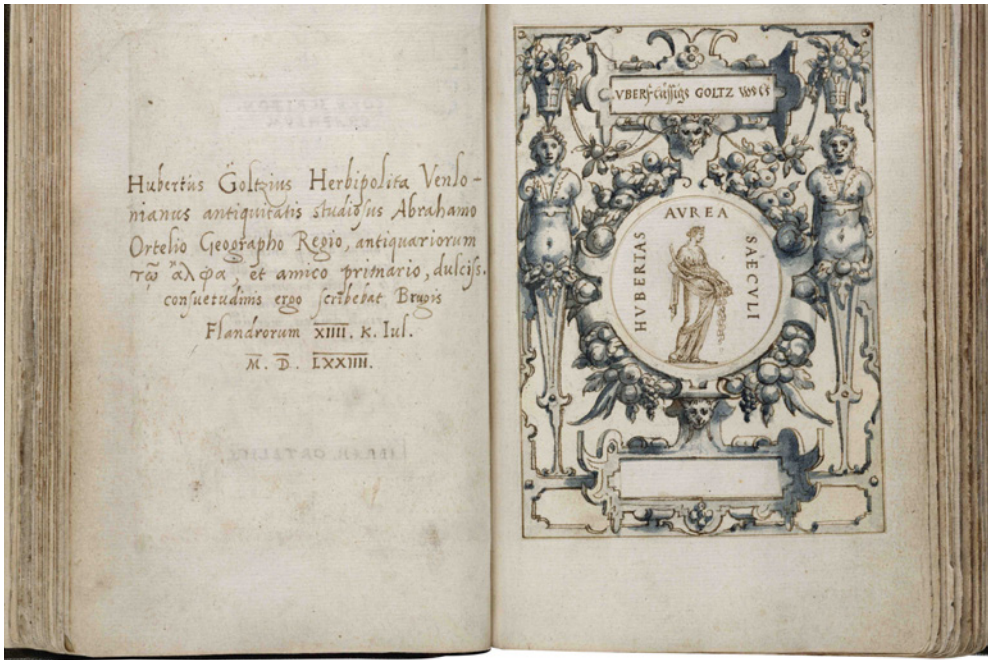 Hubertus Goltzius Herbipolita Venlo-
nianus antiquitatis studiosus Abrahamo
Ortelio Geographo Regio, antiquariorum
τῷ ἄλφα, et amico primario, dulciss.
consuetudinis ergo scribebat Brugis
Flandrorum XIIII. K. Iul.
M. D. LXXIIII.
GOLTZ
AVREA
HVBERTAS
SAECVLI